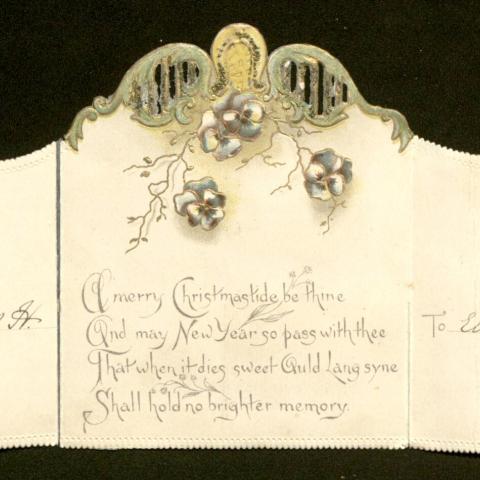 A merry Christmastide be thine
And may New Year so pass with thee
That when it dies sweet Auld Lang syne
Shall hold no brighter memory.
H.
To